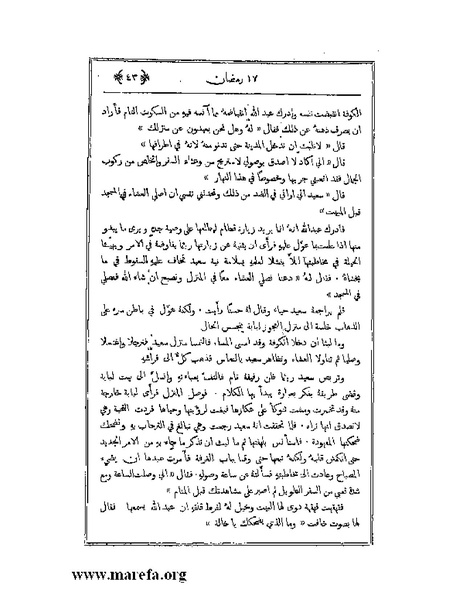 ١٧ رمضان
﴿٤٣﴾
الكوفة انقبضت نفسه وادرك عبد الله انقباضه مما آنسه فيه من السكوت التام فأراد
ان يصرف ذهنه عن ذلك فقال « له وهل نحن بعيدون عن منزلك »
قال « لا نلبث ان ندخل المدينة حتى ندنو منه لانه في اطرافها »
قال « اني أكاد لا اصدق بوصولي لاستريح من وعثاء السفر واتخلص من ركوب
الجمال فقد اتعبني جريها وخصوصاً في هذا النهار »
قال « سعيد اني اوافي في الغد من ذلك وتحدثني نفسي ان اصلي العشاء في المسجد
قبل المبيت »
فادرك عبدالله انه انما يريد زيارة قطام ليطلعها على وصية جده ويرى ما يبدو
منها اذا علمت بما عوّل عليه فرأى ان يثنيه عن زيارتها ريثما يفاوضه في الامر ويهيئا
الحيلة في مخاطبتها لئلاَّ يفشلا لعلمه بسلامة نية سعيد فخاف عليه السقوط في ما
يخشاه . فقال له « دعنا نصلي العشاء معاً في المنزل ونصبح ان شاء الله فنصلي
في المسجد »
فلم يراجعه سعيد حياء وقال له حسناً رأيت . ولكنه عوّل في باطن سره على
الذهاب خلسة الى منزل العجوز لبابة يتجسس الحال
وما لبثا ان دخلا الكوفة وقد امسى المساء فالتمسا منزل سعيد فترجلا واغتسلا
وصليا ثم تناولا العشاء وتظاهر سعيد بالنعاس فذهب كلٌّ الى فراشه
وتربص سعيد ريثما ظن رفيقه نام فالتف بعباءته وانسل الى بيت لبابة
وقضى طريقه يفكر بعبارة يبدأ بها الكلام . فوصل المنزل فرأى لبابة خارجة
منه وقد تخمرت ومشت تتوكأ على عكازها فبغت لرؤيتها وحياها فردت التحية وهي
لا تصدق انها تراه . فلما تحققت انه سعيد رجعت وهي تبالغ في الترحاب به وتضحك
ضحكتها المعهودة . فاستأنس بلهفتها ثم ما لبث ان تذكر ما جاء به من الامر الجديد
حتى انكمش قلبه ولكنه تبعها حتى وقفا بباب الغرفة فأمرت عبدها ان يضيء
المصباح وعادت الى مخاطبته فسألته عن ساعة وصوله . فقال « اني وصلت الساعة ومع
شدة تعبي من السفر الطويل لم اصبر على مشاهدتك قبل المنام »
فقهقهت قهقهة دوى لها البيت وخيل له لفرط قلقه ان عبد الله يسمعها فقال
لها بصوت خافت « وما الذي يضحكك يا خالة »
www.marefa.org